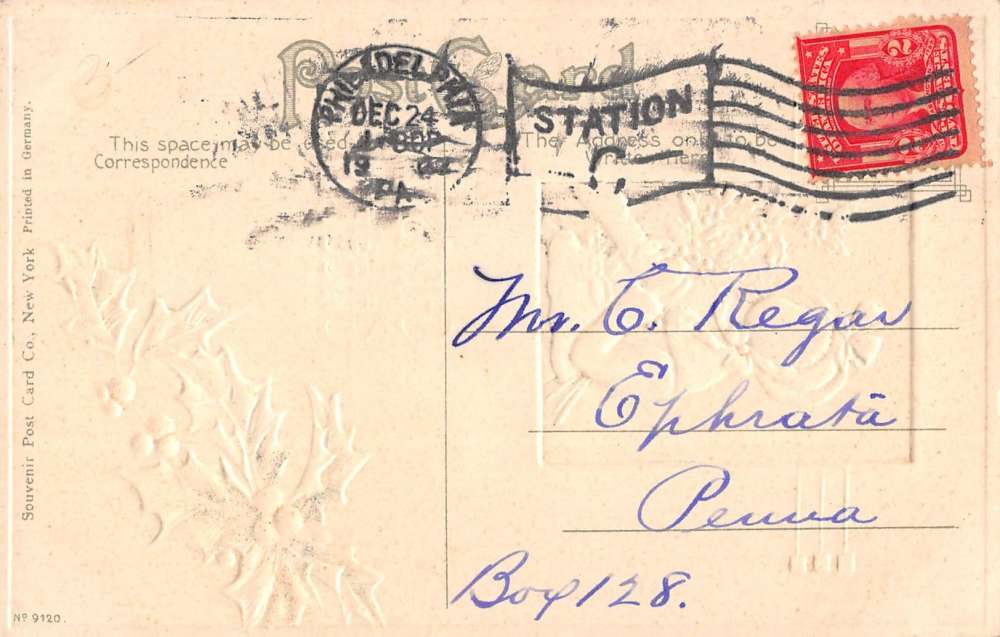 Post Card
PHILADELPHIA
DEC 24
PA
STATION
This space may be used
Correspondence
The Address only to be
Written Here
Mr. C. Regar
Ephrata
Penna
Box 128.
Souvenir Post Card Co., New York Printed in Germany.
Nº 9120.
2
2